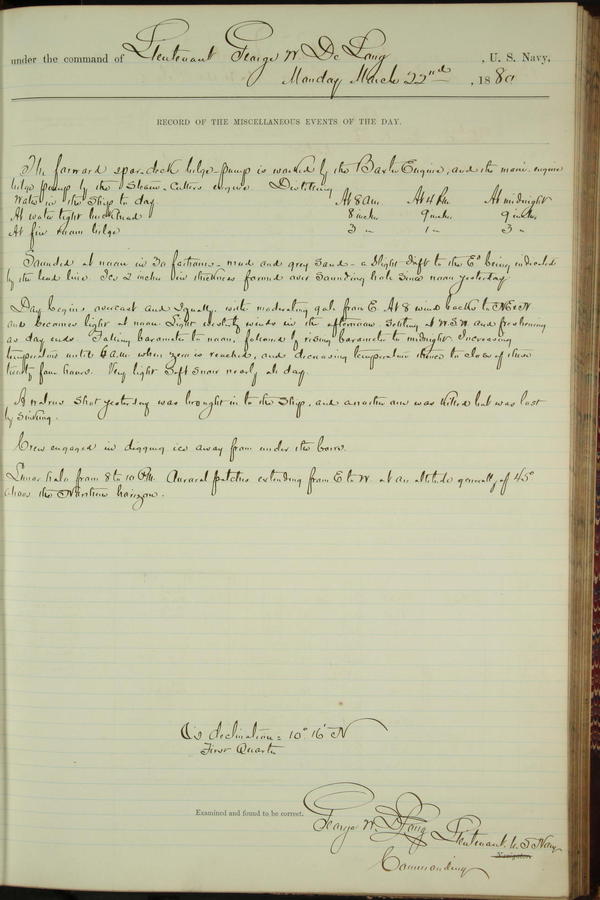 under the command of Lieutenant George W. De Long, U. S. Navy,
Monday March 22nd, 1880
RECORD OF THE MISCELLANEOUS EVENTS OF THE DAY.
The forward spar-deck bilge-pump is worked by the Baxter Engine, and the main engine
bilge pump by the Steam-Cutters engine. Distilling
Water in the Ship to day At 8 am. At 4 P.m. At midnight
At water tight bulkhead 8 inches 9 inches 9 inches
At fire room bilge 3 " 1 " 3 "
Sounded at noon in 30 fathoms - mud and grey sand - a slight drift to the Ed being indicated
by the lead line. Ice 2 inches in thickness formed over sounding hole since noon yesterday
Day begins overcast and squally, with moderating gale from E. At 8 wind backs to NExN
and becomes light at noon. Light westerly winds in the afternoon settling at W.S.W. and freshening
as day ends. Falling barometer to noon, followed by rising barometer to midnight. Increasing
temperature until 6 a.m. when zero is reached, and decreasing temperature thence to close of these
twenty four hours. Very light soft snow nearly all day.
A walrus shot yesterday was brought in to the Ship, and another one was killed but was lost
by sinking.
Crew engaged in digging ice away from under the bows.
Lunar halo from 8 to 10 P.M. Auroral patches extending from E to W. at an altitude generally of 45°
above the Northern horizon.
☾'s declination = 10° 16' N
First Quarter
Examined and found to be correct.
George W. De Long Lieutenant U.S. Navy
Navigator.
Commanding